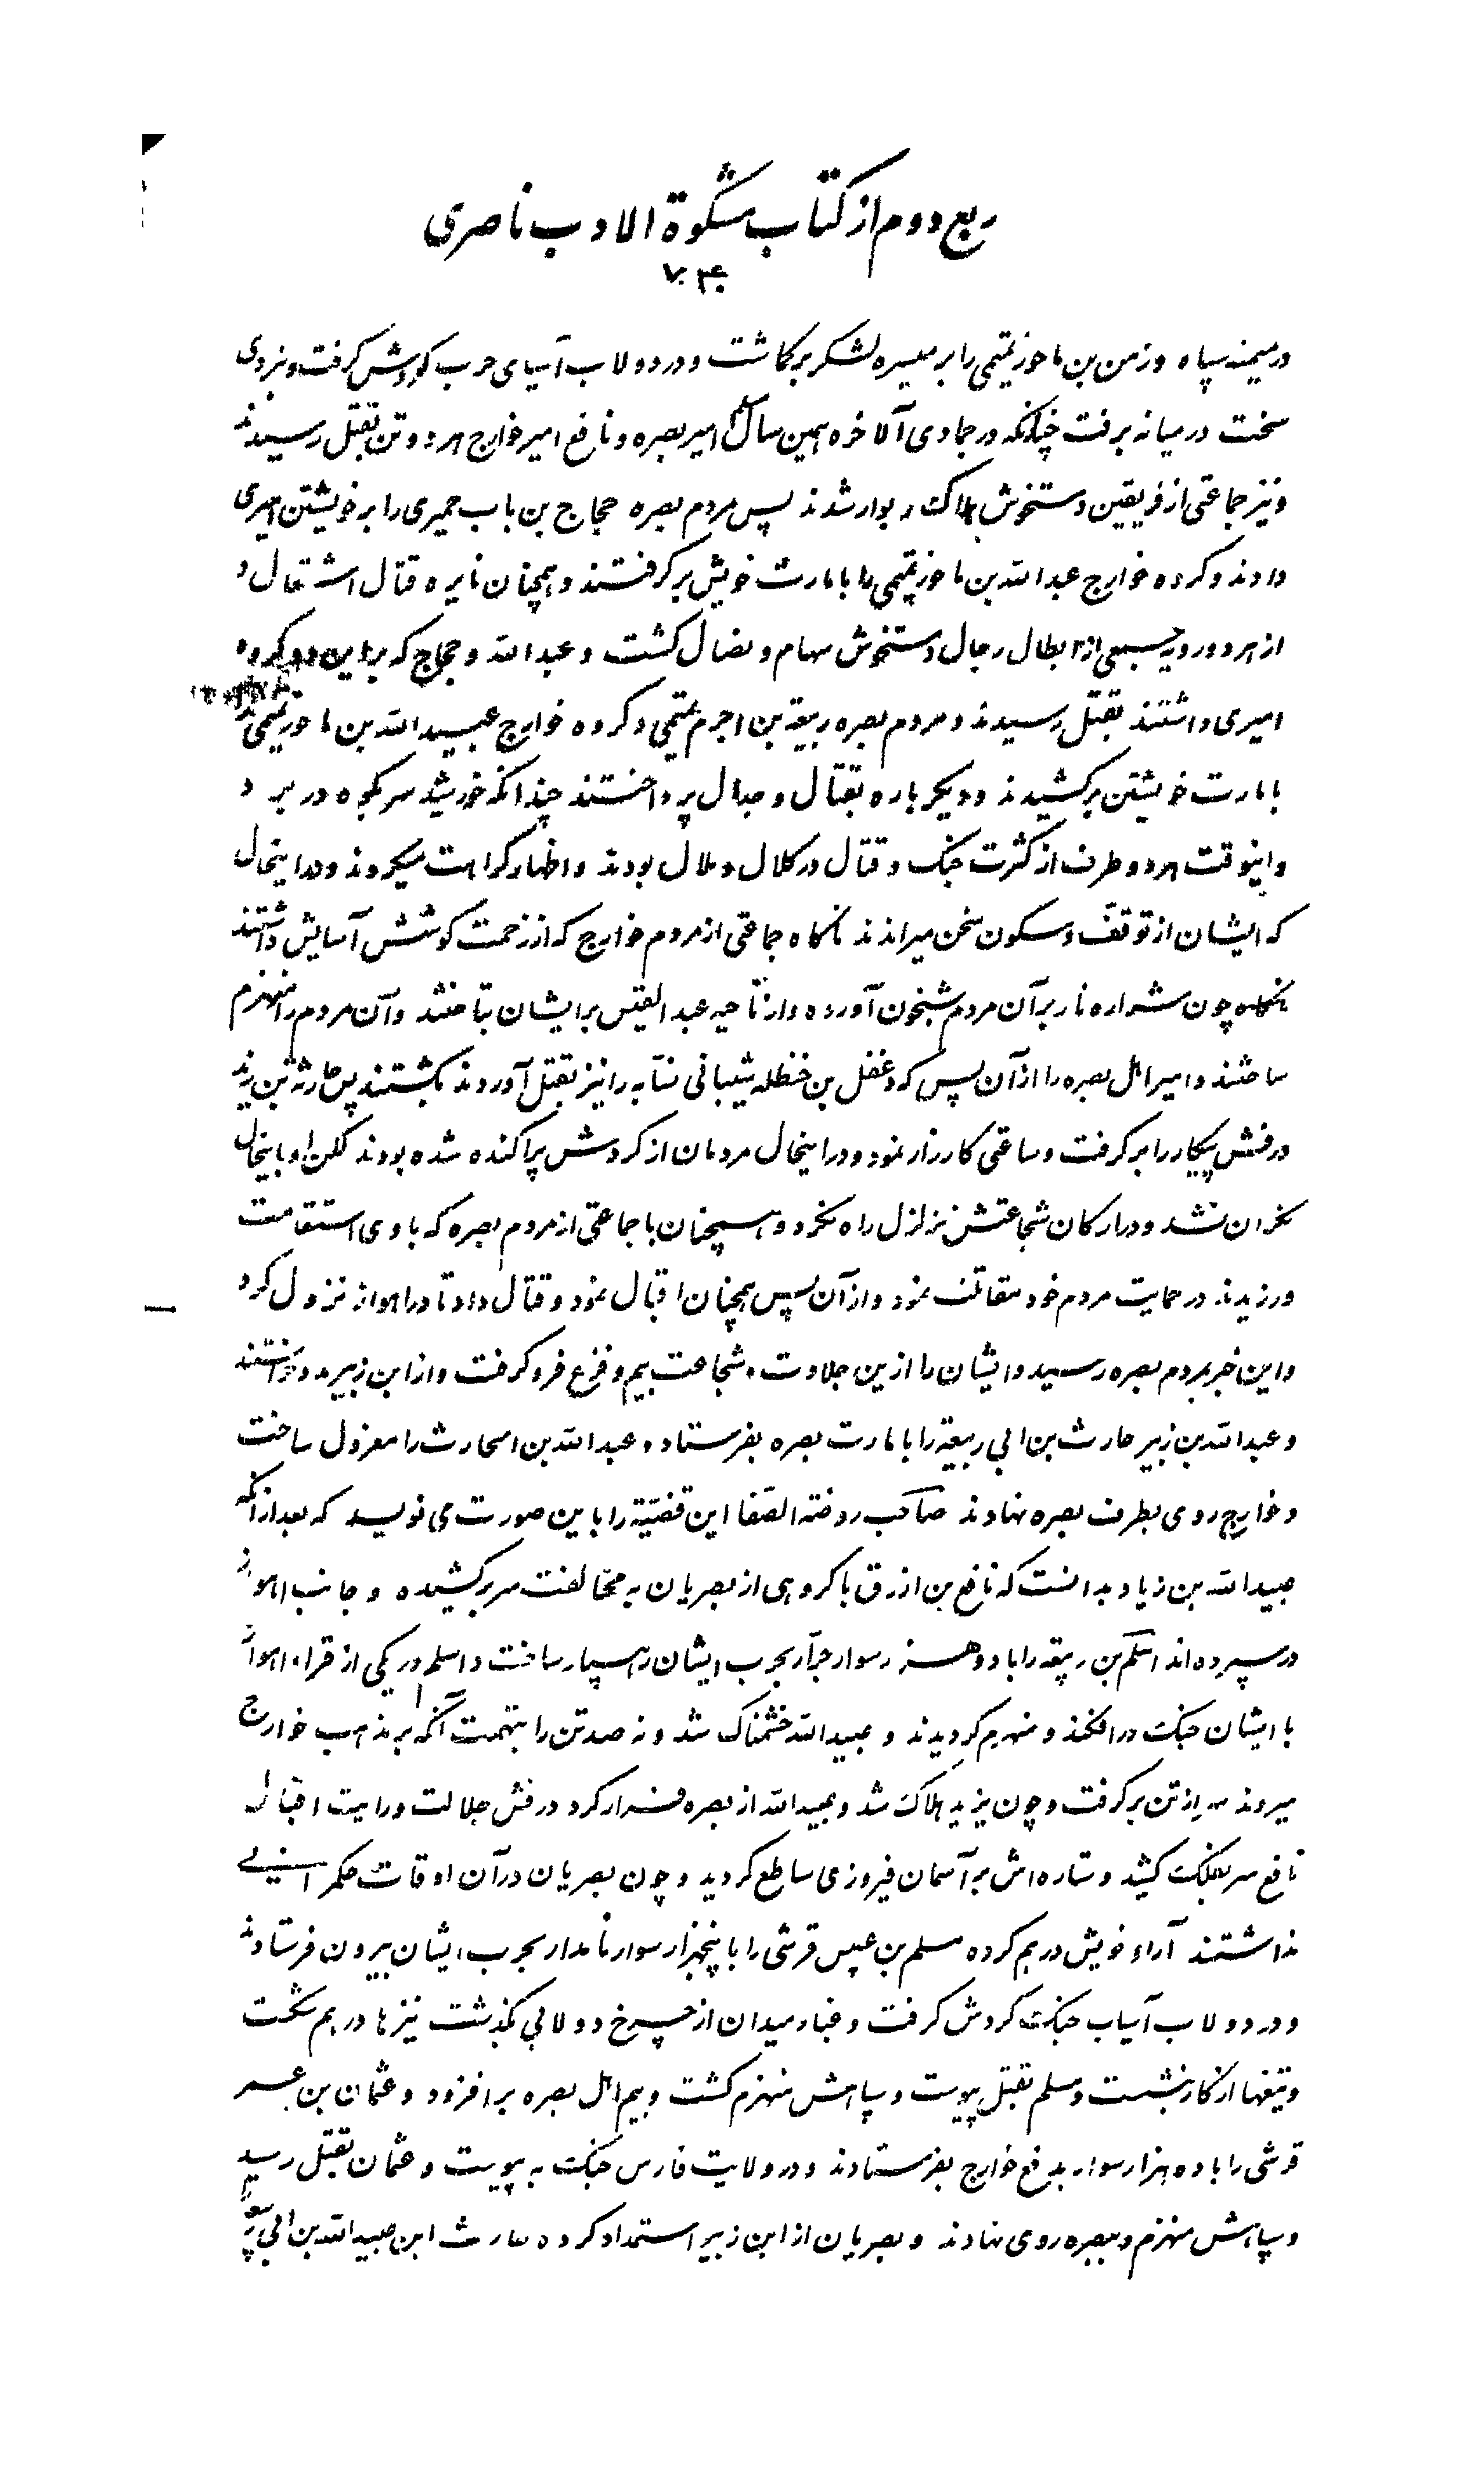 ربع دوم از کتاب مشکوة الادب ناصری
۷۰۴
در میمنه سپاه و زمن بن ماحوز تمیمی را بر میسره لشکر برکماشت و در دولاب آسیای حرب کردش کرفت و نبردی
سخت در میانه برفت چنانکه در جمادی الاخره همین سال مسلم امیر بصره و نافع امیر خوارج هر دو تن بقتل رسیدند
و نیز جماعتی از فریقین دستخوش هلاک و بوار شدند پس مردم بصره حجاج بن باب حمیری را بر خویشتن امیری
دادند و کروه خوارج عبدالله بن ماحوز تمیمی را بامارت خویش برکرفتند و همچنان نایره قتال اشتعال و
از هر دو رویه جمعی از ابطال رجال دستخوش سهام و نصال کشت و عبدالله و حجاج که بر این دو کروه
امیری داشتند بقتل رسیدند و مردم بصره ربیعة بن اجرم تمیمی و کروه خوارج عبیدالله بن ماحوز تمیمی را
بامارت خویشتن برکشیدند و دیکر باره بقتال و جدال پرداختند چندانکه خورشید سر بکوه در برد
و اینوقت هر دو طرف از کثرت جنک و قتال در کلال و ملال بودند و اظهار کراهت میکردند و در اینحال
که ایشان از توقف و سکون سخن میراندند ناکاه جماعتی از مردم خوارج که از زحمت کوشش آسایش داشتند
ناکاه چون شراره نار بر آن مردم شبیخون آورده و از ناحیه عبدالقیس بر ایشان بتاختند و آن مردم را منهزم
ساختند و امیر اهل بصره را از آن پس که دغفل بن حنظله شیبانی نسابه را نیز بقتل آوردند بکشتند پس حارثة بن زید
درفش پیکار را برکرفت و ساعتی کارزار نمود و در اینحال مردمان از کردش پراکنده شده بودند لکن او باینحال
نکران نشد و در ارکان شجاعتش تزلزل راه نکرد و همچنان با جماعتی از مردم بصره که با وی استقامت
ورزیدند در حمایت مردم خود مقاتلت نمود و از آن پس همچنان اقبال نمود و قتال داد تا در اهواز نزول کرد
و این خبر بمردم بصره رسید و ایشان را از این جلادت و شجاعت بیم و فزع فرو کرفت و از ابن زبیر مدد خواستند
و عبدالله بن زبیر حارث بن ابی ربیعة را بامارت بصره بفرستاد و عبدالله بن الحارث را معزول ساخت
و خوارج روی بطرف بصره نهادند صاحب روضة الصفا این قضیّه را باین صورت می نویسد که بعد از آنکه
عبیدالله بن زیاد بدانست که نافع بن ازرق با کروهی از بصریان به مخالفت سر برکشیده و جانب اهواز
در سپرده اند اسلم بن ربیعه را با دو هزار سوار جرّار بحرب ایشان رهسپار ساخت و اسلم در یکی از قراء اهواز
با ایشان جنک درافکند و منهزم کردیدند و عبیدالله خشمناک شد و نه صد تن را بتهمت آنکه بر مذهب خوارج
میروند سر از تن برکرفت و چون یزید هلاک شد و عبیدالله از بصره فرار کرد درفش جلالت و رایت اقبال
نافع سر بفلک کشید و ستاره اش بر آسمان فیروزی ساطع کردید و چون بصریان در آن اوقات حکمرانی
نداشتند آراء خویش درهم کرده مسلم بن عبیس قرشی را با پنجهزار سوار نامدار بحرب ایشان بیرون فرستادند
و در دولاب آسیاب جنک کردش کرفت و غبار میدان از چرخ دولابی بکذشت نیزها درهم شکست
و تیغها از کار نشست و مسلم بقتل پیوست و سپاهش منهزم کشت و بیم اهل بصره برافزود و عثمان بن عمر
قرشی را با ده هزار سوار بدفع خوارج بفرستادند و در ولایت فارس جنک به پیوست و عثمان بقتل رسید
و سپاهش منهزم و ببصره روی نهادند و بصریان از ابن زبیر استمداد کرده حارث ابن عبیدالله بن ابی ربیعه